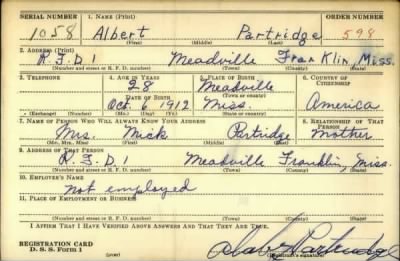 SERIAL NUMBER 1. NAME (Print) ORDER NUMBER
1058 Albert Partridge 598
(First) (Middle) (Last)
2. ADDRESS (Print)
R.F.D 1 Meadville Franklin, Miss.
(Number and street or R. F. D. number) (Town) (County) (State)
3. TELEPHONE 4. AGE IN YEARS 5. PLACE OF BIRTH 6. COUNTRY OF CITIZENSHIP
28 Meadville
DATE OF BIRTH (Town or county)
Oct. 6 1912 Miss. America
(Exchange) (Number) (Mo.) (Day) (Yr.) (State or country)
7. NAME OF PERSON WHO WILL ALWAYS KNOW YOUR ADDRESS 8. RELATIONSHIP OF THAT PERSON
Mrs. Mick Partridge Mother
(Mr., Mrs., Miss) (First) (Middle) (Last)
9. ADDRESS OF THAT PERSON
R.F.D 1 Meadville Franklin, Miss.
(Number and street or R. F. D. number) (Town) (County) (State)
10. EMPLOYER'S NAME
Not employed
11. PLACE OF EMPLOYMENT OR BUSINESS
(Number and street or R. F. D. number) (Town) (County) (State)
I AFFIRM THAT I HAVE VERIFIED ABOVE ANSWERS AND THAT THEY ARE TRUE.
REGISTRATION CARD
D. S. S. Form 1 (over) (Registrant's signature)
Partridge